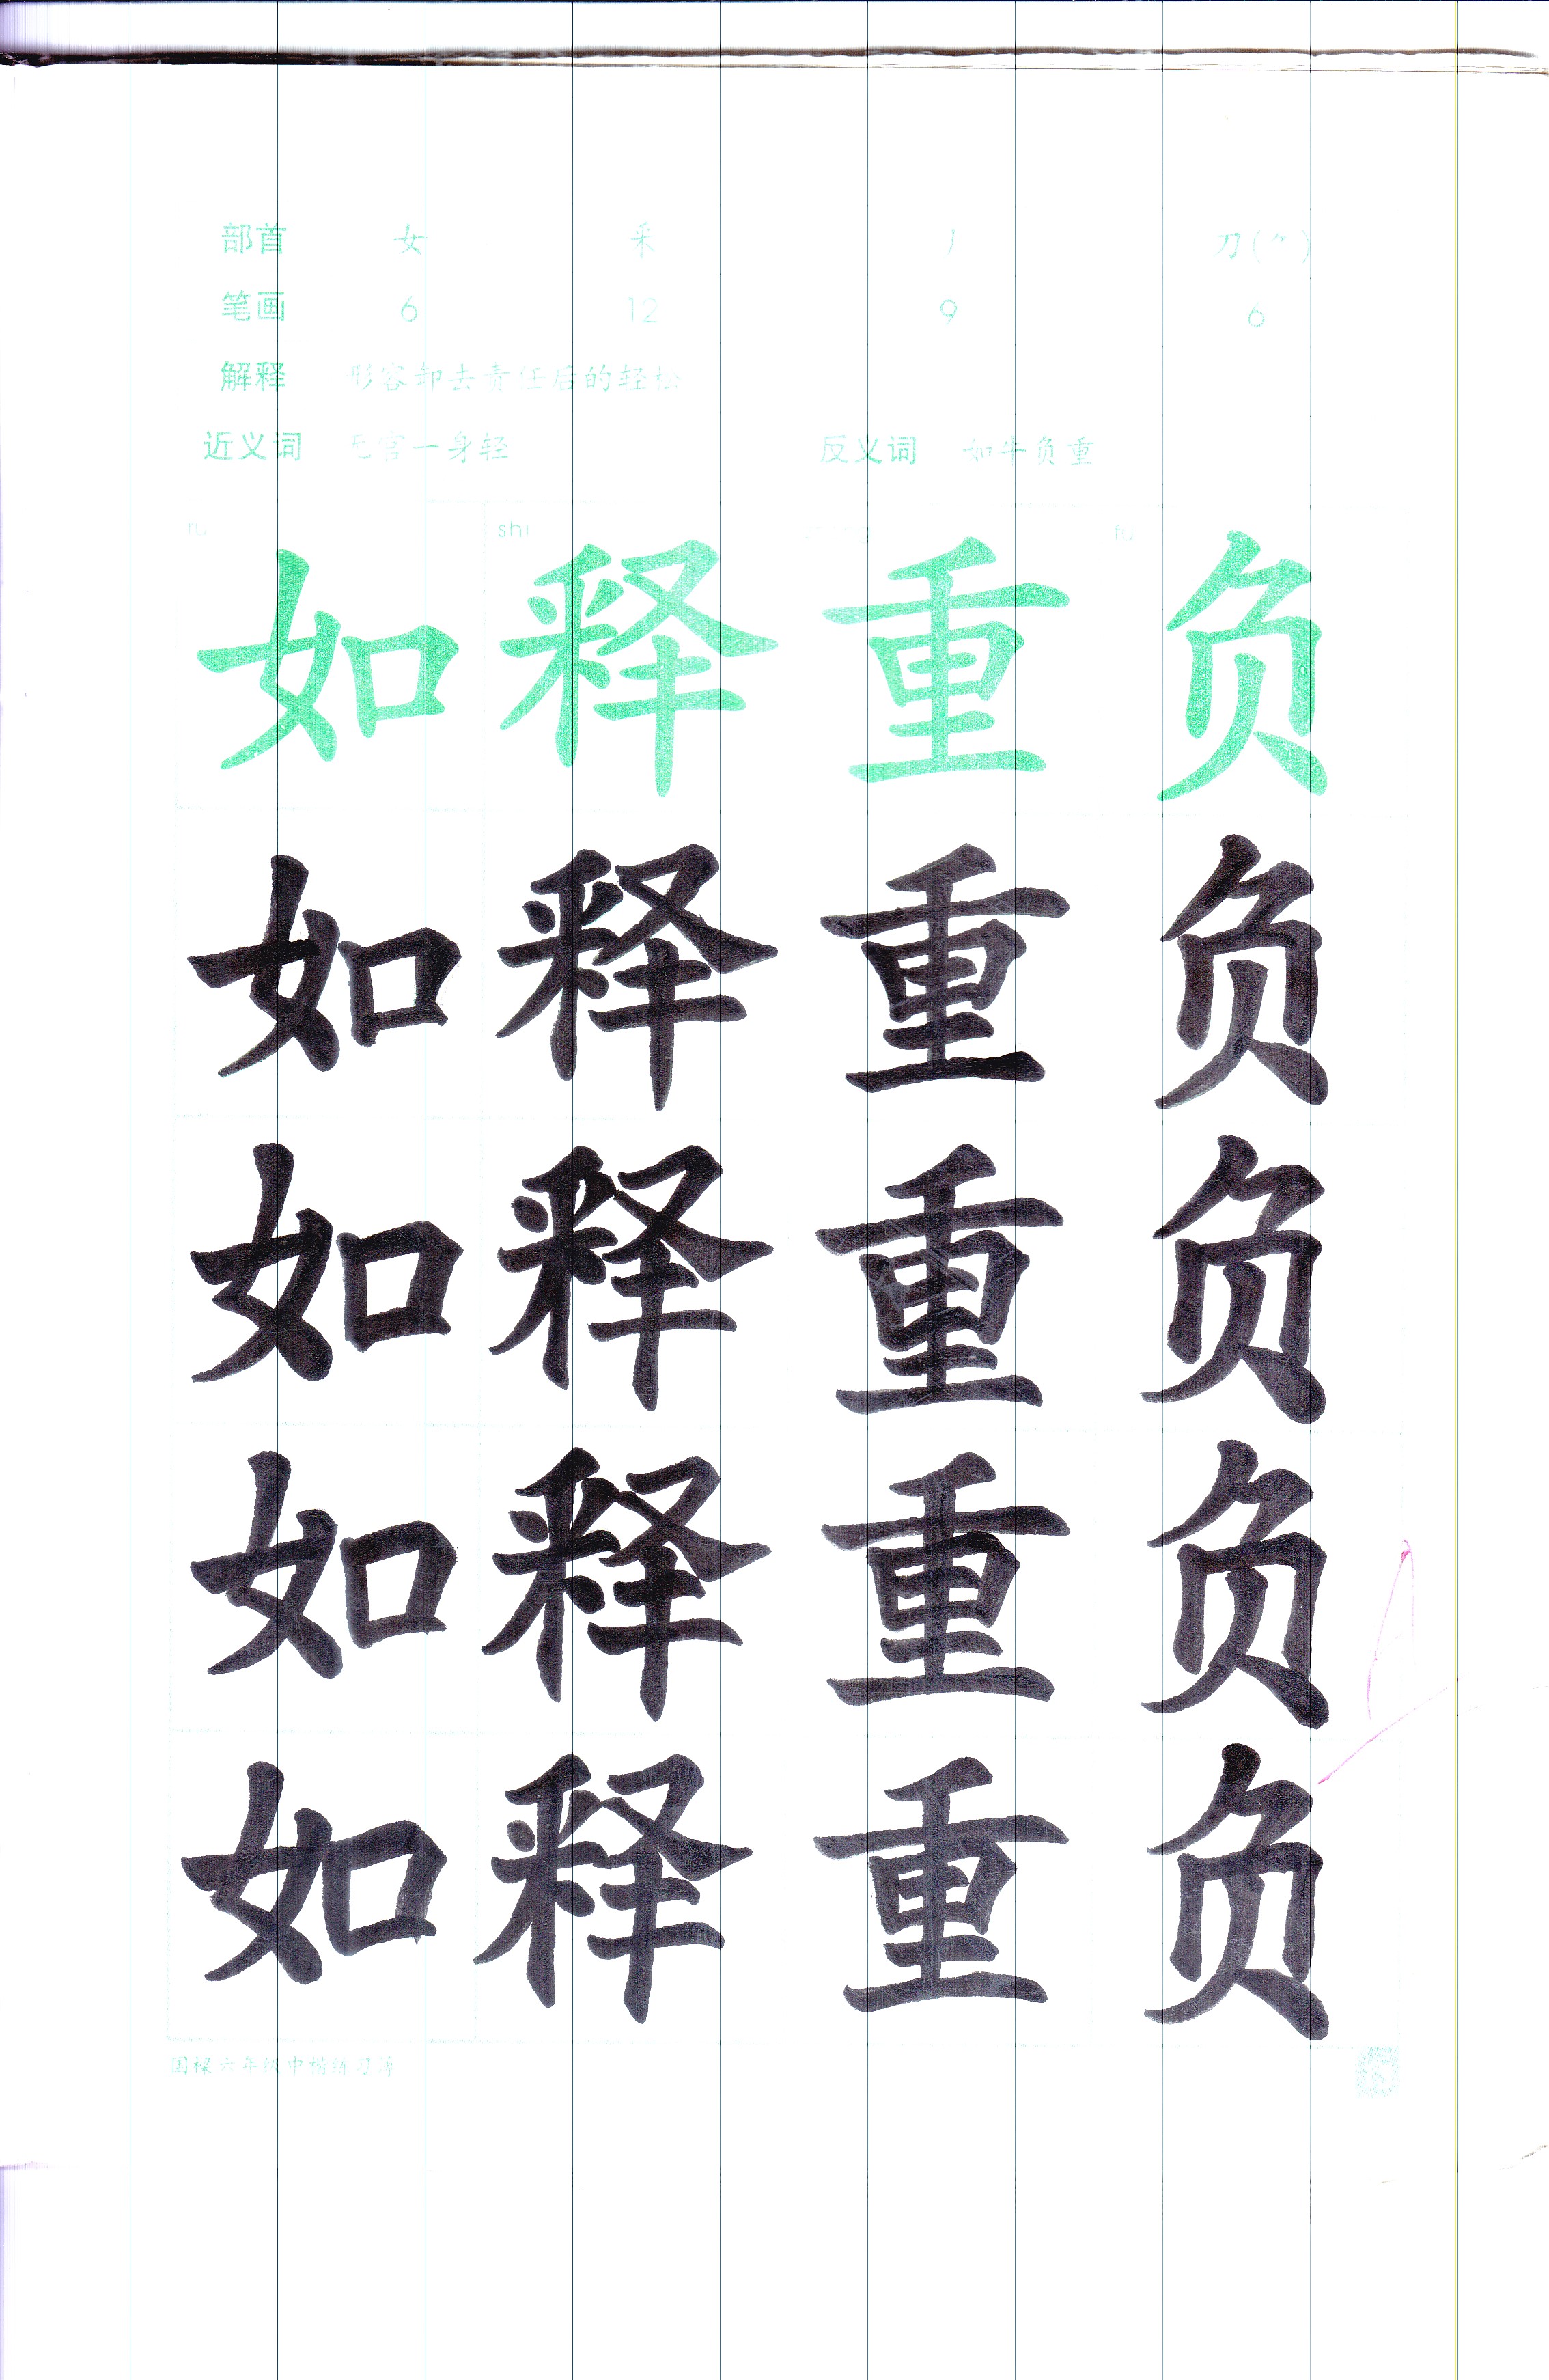 部首 女 釆 丿 刀(⺈)
笔画 6 12 9 6
解释 形容卸去责任后的轻松
近义词 无官一身轻 反义词 如牛负重
shì fù
如释重负
如释重负
如释重负
如释重负
如释重负
国樑六年级中楷练习簿